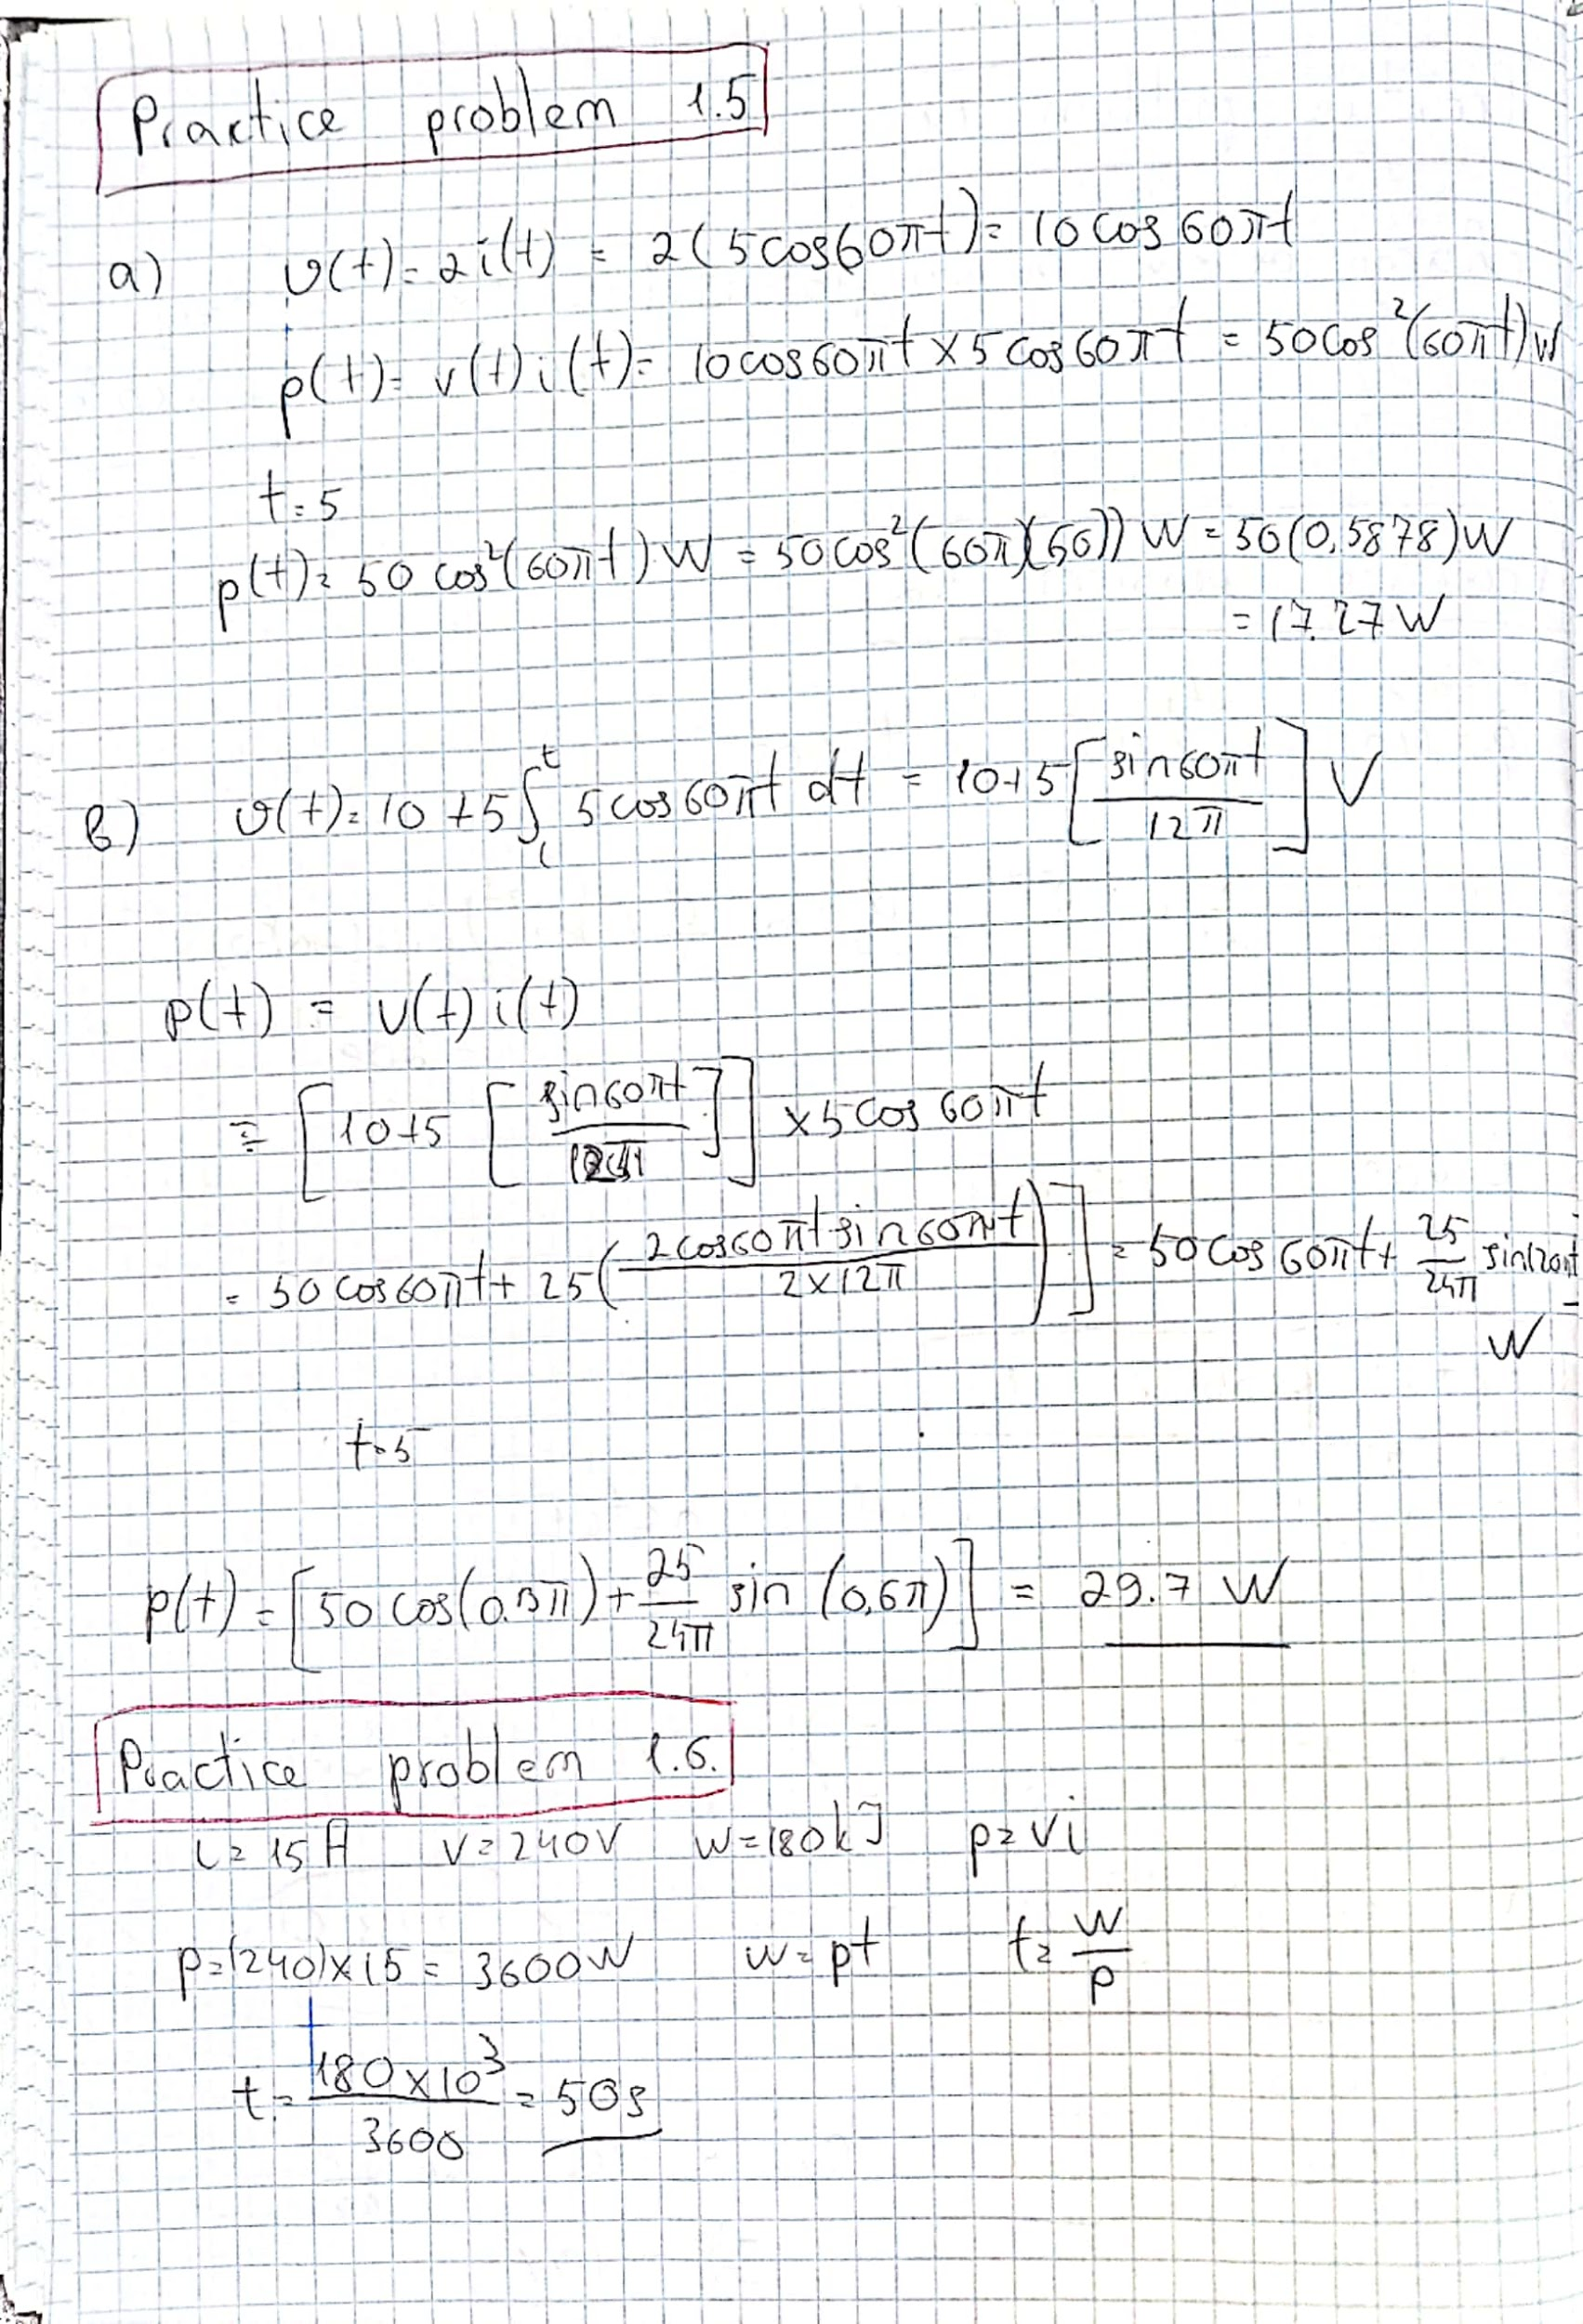 Practice problem 1.5
a) v(t) = 2i(t) = 2(5cos60πt) = 10cos60πt
p(t) = v(t)i(t) = 10cos60πt × 5cos60πt = 50cos²(60πt)W
t=5
p(t) = 50 cos²(60πt) W = 50cos²(60π)(50)) W = 50(0,5878)W
= 17.27 W
b) v(t) = 10 + 5∫ᵗ 5cos60πt dt = 10+5[sin60πt / 12π] V
p(t) = v(t) i(t)
= [10+5 [sin60πt / 12π]] × 5cos60πt
= 50cos60πt + 25(2cos60πt sin60πt / 2×12π)] = 50cos60πt + 25/24π sin120πt
W
t=5
p(t) = [50cos(0.3π) + 25/24π sin (0,6π)] = 29.7 W
Practice problem 1.6.
i = 15A v = 240V w = 180kJ p = vi
p = (240)×15 = 3600W w = pt t = w/p
t = 180×10³ / 3600 = 50s